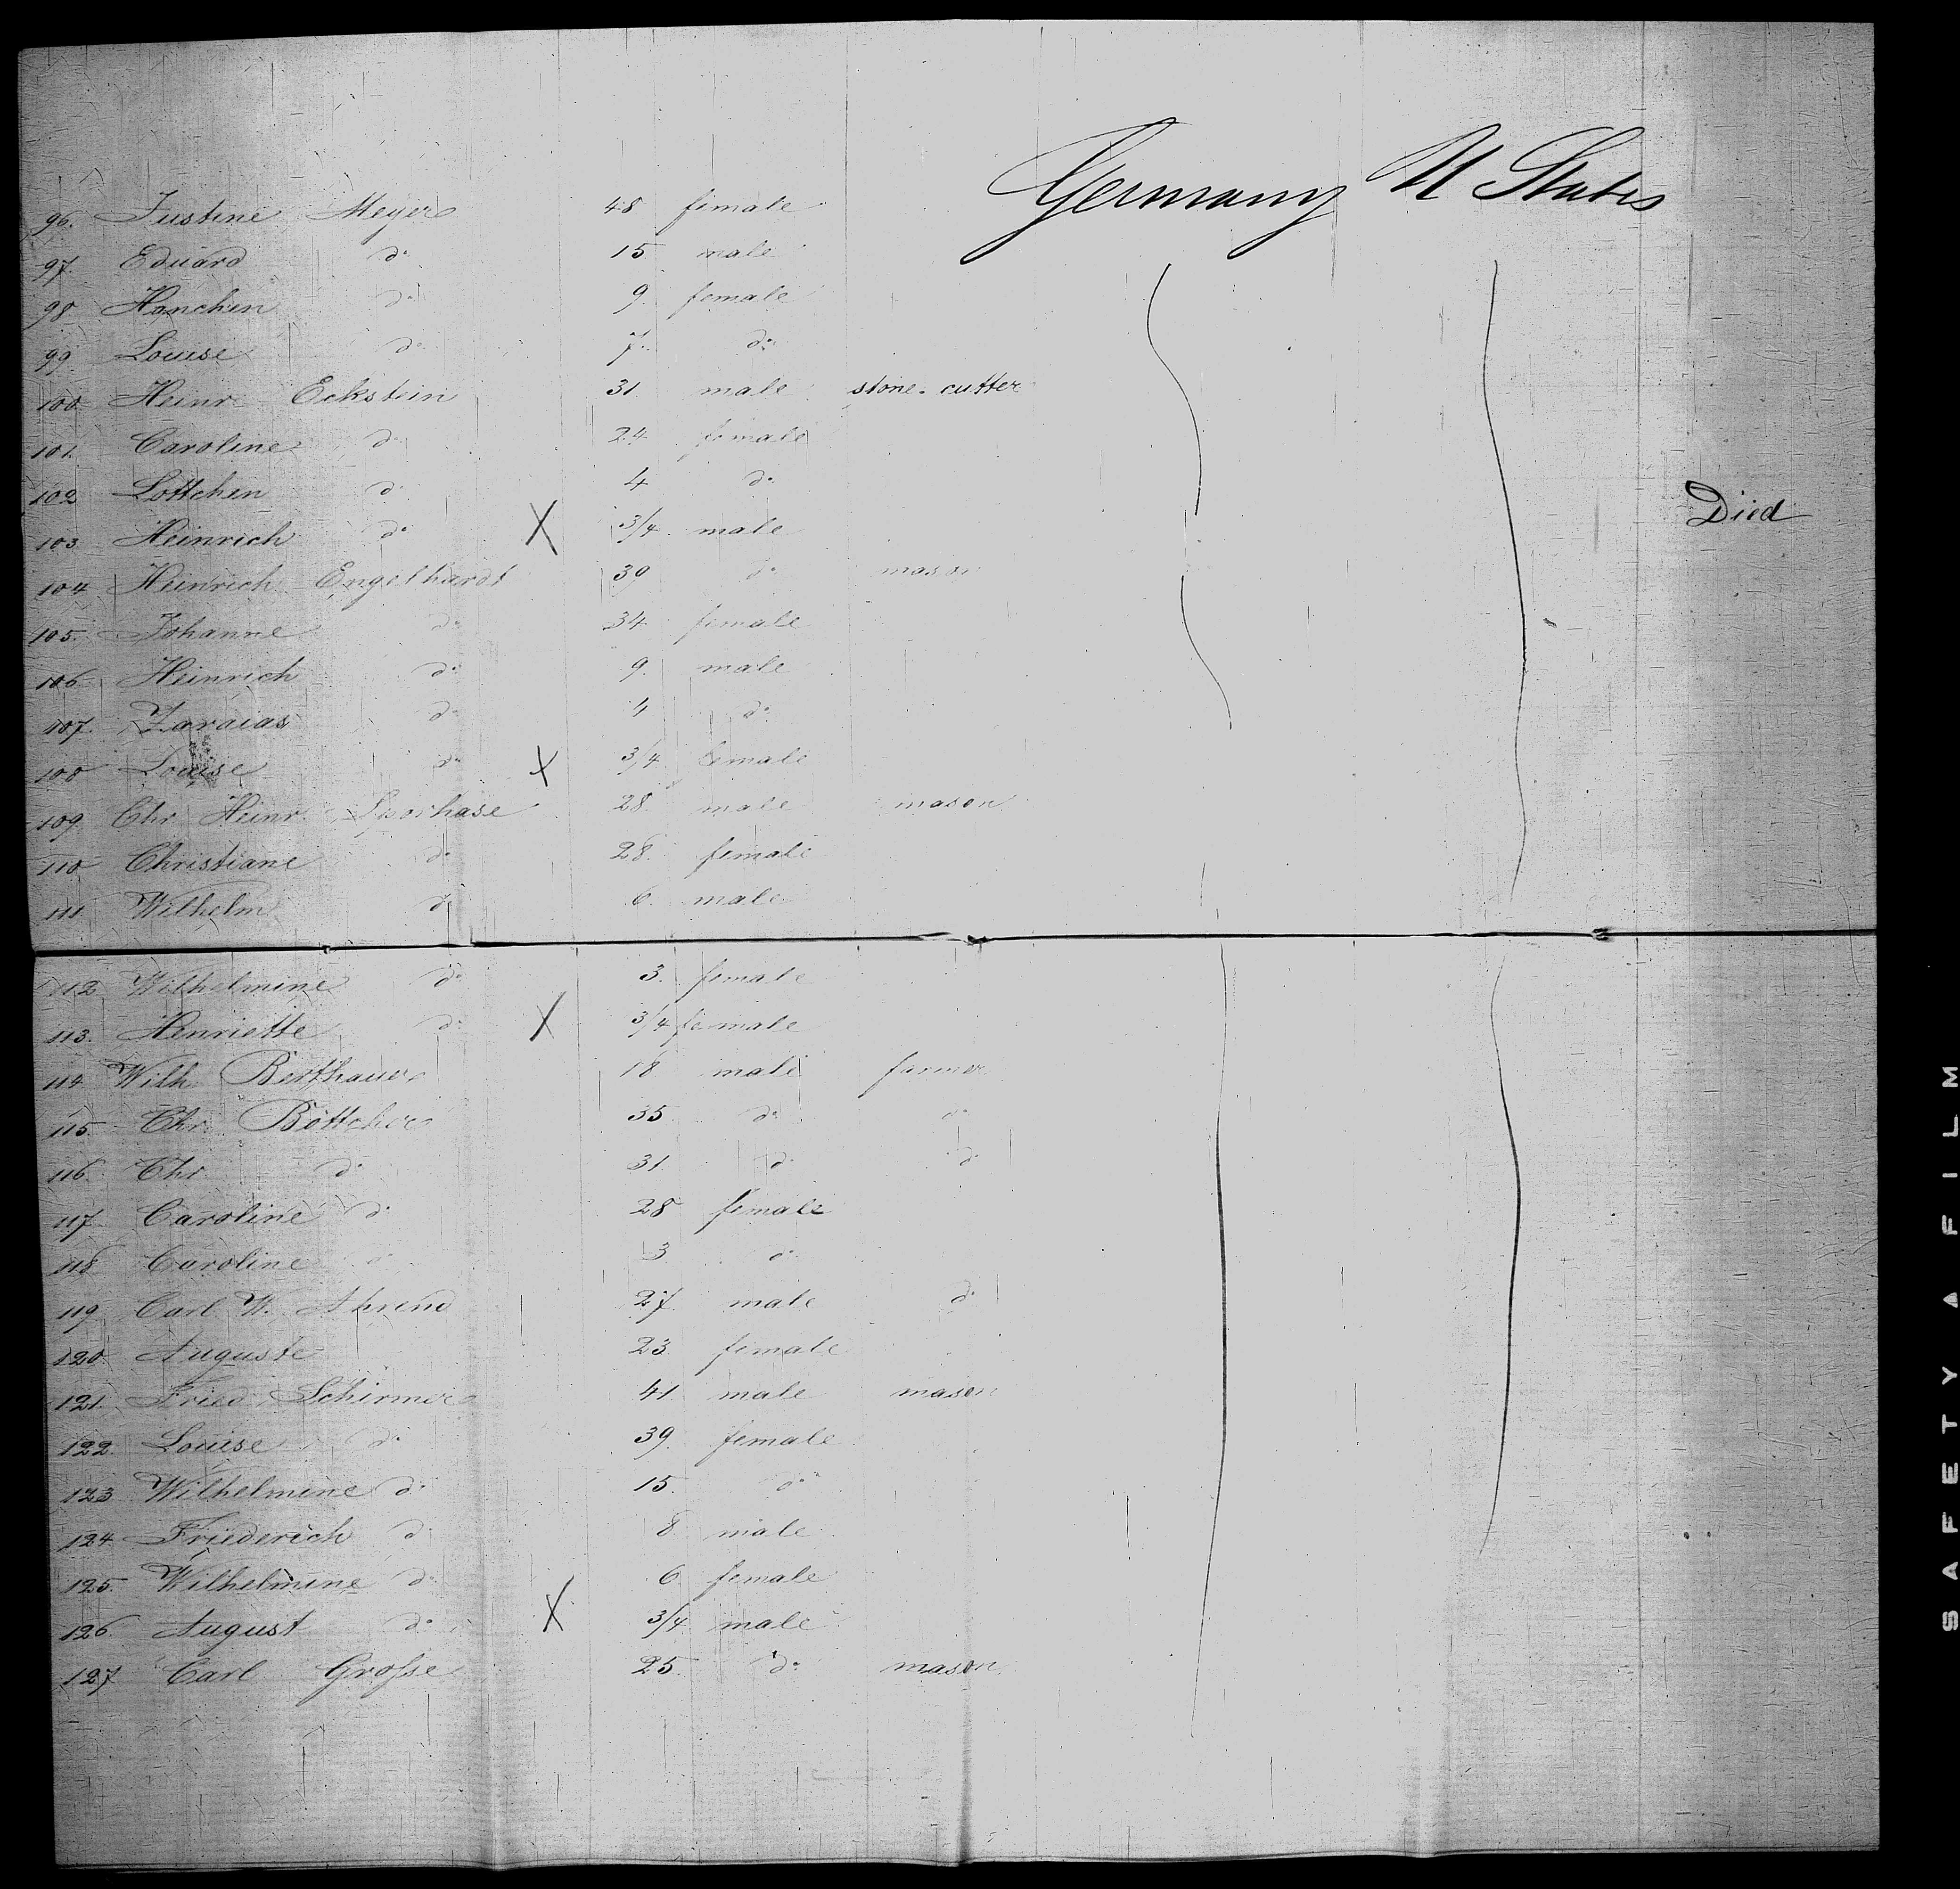 Germany U States
96. Justine Meyer 48 female
97. Eduard do 15 male
98 Hanchen do 9. female
99. Louise do 7. do
100. Heinr Eckstein 31. male stone-cutter
101. Caroline do 24 female
102 Lottchen do 4 do
103 Heinrich do X 3/4 male Died
104 Heinrich Engelhardt 39 do mason
105. Johanne do 34 female
106. Heinrich do 9. male
107. do 4 do
108 Louise do X 3/4 female
109. Chr Heinr. Sporhase 28. male mason
110 Christiane do 28. female
111 Wilhelm do 6. male
112 Wilhelmine do 3. female
113. Henriette do X 3/4 female
114 Wilh. Berthauer 18 male farmer
115. Chr. Böttcher 35. do do
116. Chr do 31 do do
117. Caroline do 28 female
118 Caroline do 3 do
119. Carl W. Ahrend 27. male do
120. Auguste 23 female
121. Fried Schirmer 41 male mason
122. Louise do 39. female
123 Wilhelmine do 15. do
124 Friederich do 8 male
125. Wilhelmine do 6 female
126. August do X 3/4 male
127 Carl Grosse 25. do mason
SAFETY A FILM